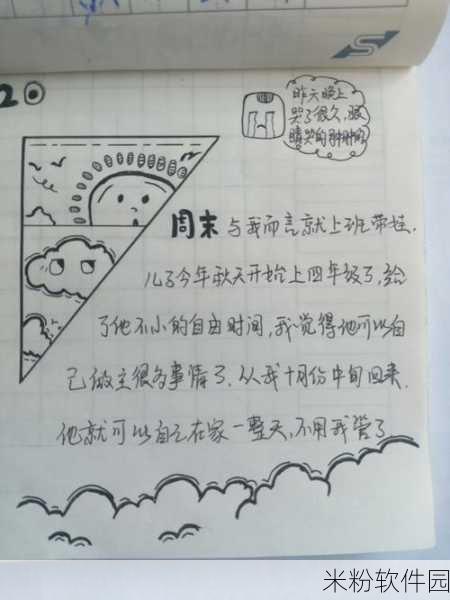 20
昨天晚上
哭了很久,眼
睛哭的肿肿的
周末与我而言就上班带娃.
儿子今年秋天开始上四年级了,给
了他不小的自由时间,我觉得他可以自
己做主很多事情了.从我十月份中旬回来.
他就可以自己在家一整天,不用我管了
米粉软件园